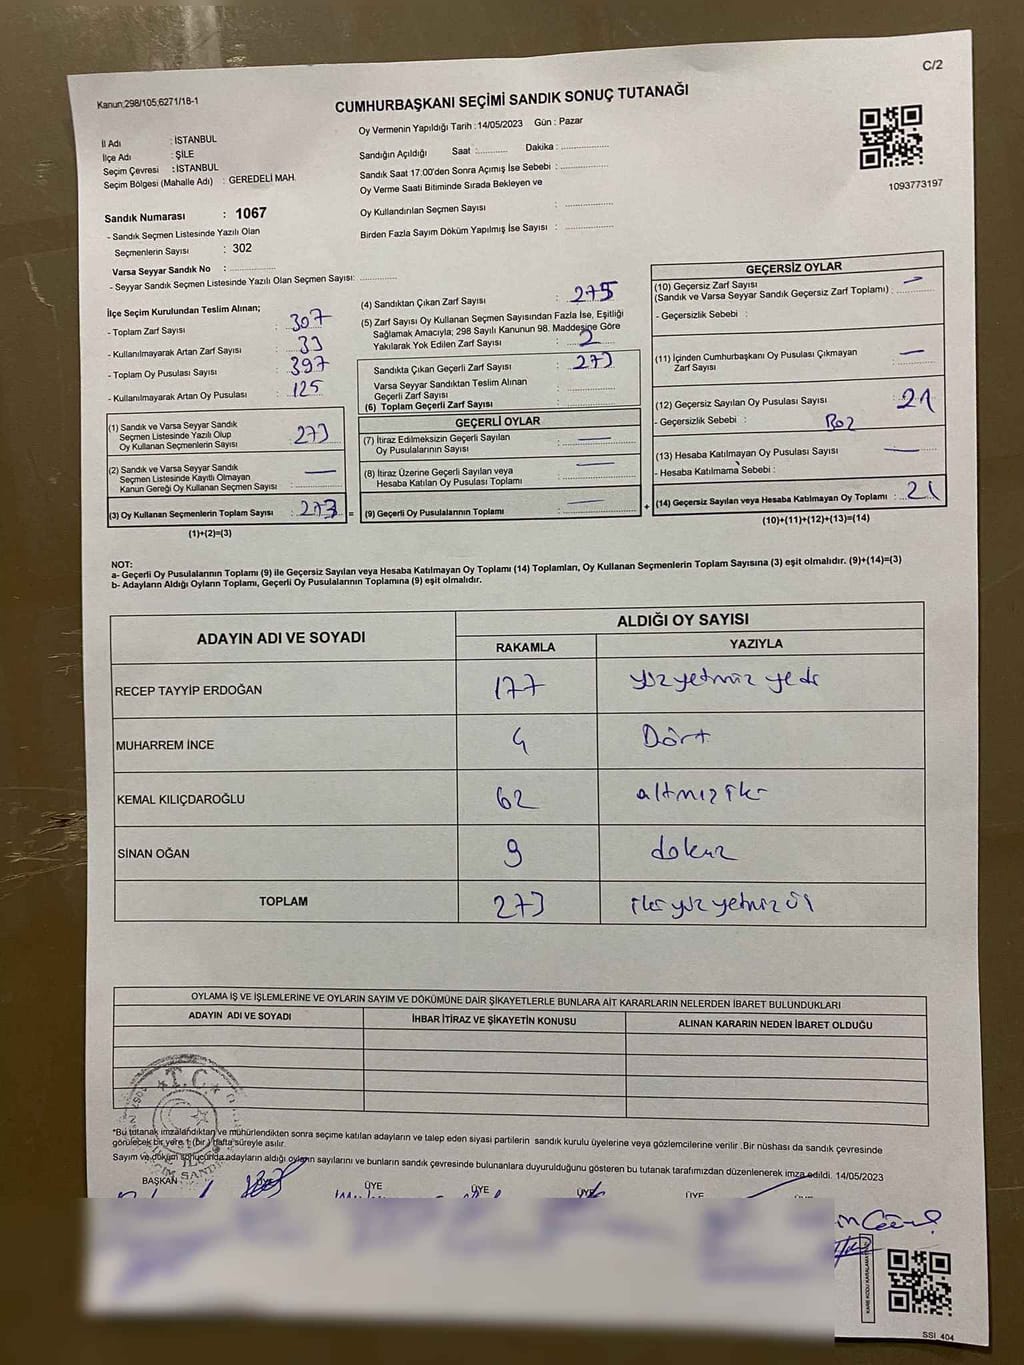 C/2
Kanun;298/105,6271/18-1
CUMHURBAŞKANI SEÇİMİ SANDIK SONUÇ TUTANAĞI
İl Adı : İSTANBUL
İlçe Adı : ŞİLE
Seçim Çevresi : İSTANBUL
Seçim Bölgesi (Mahalle Adı) : GEREDELİ MAH.
Oy Vermenin Yapıldığı Tarih : 14/05/2023 Gün : Pazar
Sandığın Açıldığı Saat :........... Dakika : ..................
Sandık Saat 17:00'den Sonra Açımış İse Sebebi : ..................
Oy Verme Saati Bitiminde Sırada Bekleyen ve
Oy Kullandırılan Seçmen Sayısı : ..................
Birden Fazla Sayım Döküm Yapılmış İse Sayısı : ..................
1093773197
Sandık Numarası : 1067
- Sandık Seçmen Listesinde Yazılı Olan
Seçmenlerin Sayısı : 302
Varsa Seyyar Sandık No : .................
- Seyyar Sandık Seçmen Listesinde Yazılı Olan Seçmen Sayısı: .............
İlçe Seçim Kurulundan Teslim Alınan;
- Toplam Zarf Sayısı : 307
- Kullanılmayarak Artan Zarf Sayısı : 33
- Toplam Oy Pusulası Sayısı : 397
- Kullanılmayarak Artan Oy Pusulası : 125
(1) Sandık ve Varsa Seyyar Sandık
Seçmen Listesinde Yazılı Olup
Oy Kullanan Seçmenlerin Sayısı : 273
(2) Sandık ve Varsa Seyyar Sandık
Seçmen Listesinde Kayıtlı Olmayan
Kanun Gereği Oy Kullanan Seçmen Sayısı : —
(3) Oy Kullanan Seçmenlerin Toplam Sayısı : 273 =
(1)+(2)=(3)
(4) Sandıktan Çıkan Zarf Sayısı : 275
(5) Zarf Sayısı Oy Kullanan Seçmen Sayısından Fazla İse, Eşitliği
Sağlamak Amacıyla; 298 Sayılı Kanunun 98. Maddesine Göre
Yakılarak Yok Edilen Zarf Sayısı : 2
Sandıkta Çıkan Geçerli Zarf Sayısı : 273
Varsa Seyyar Sandıktan Teslim Alınan
Geçerli Zarf Sayısı : ..................
(6) Toplam Geçerli Zarf Sayısı : ..................
GEÇERLİ OYLAR
(7) İtiraz Edilmeksizin Geçerli Sayılan
Oy Pusulalarının Sayısı : —
(8) İtiraz Üzerine Geçerli Sayılan veya
Hesaba Katılan Oy Pusulası Toplamı : —
(9) Geçerli Oy Pusulalarının Toplamı : — +
GEÇERSİZ OYLAR
(10) Geçersiz Zarf Sayısı
(Sandık ve Varsa Seyyar Sandık Geçersiz Zarf Toplamı) : —
- Geçersizlik Sebebi :
(11) İçinden Cumhurbaşkanı Oy Pusulası Çıkmayan
Zarf Sayısı : —
(12) Geçersiz Sayılan Oy Pusulası Sayısı : 21
- Geçersizlik Sebebi :
(13) Hesaba Katılmayan Oy Pusulası Sayısı : —
- Hesaba Katılmama Sebebi :
(14) Geçersiz Sayılan veya Hesaba Katılmayan Oy Toplamı : 21
(10)+(11)+(12)+(13)=(14)
NOT:
a- Geçerli Oy Pusulalarının Toplamı (9) ile Geçersiz Sayılan veya Hesaba Katılmayan Oy Toplamı (14) Toplamları, Oy Kullanan Seçmenlerin Toplam Sayısına (3) eşit olmalıdır. (9)+(14)=(3)
b- Adayların Aldığı Oyların Toplamı, Geçerli Oy Pusulalarının Toplamına (9) eşit olmalıdır.
ADAYIN ADI VE SOYADI ALDIĞI OY SAYISI
RAKAMLA YAZIYLA
RECEP TAYYİP ERDOĞAN 177 yüz yetmiz yedi
MUHARREM İNCE 4 Dört
KEMAL KILIÇDAROĞLU 62 altmiz iki
SİNAN OĞAN 9 dokuz
TOPLAM 273 iki yüz yetmiz üç
OYLAMA İŞ VE İŞLEMLERİNE VE OYLARIN SAYIM VE DÖKÜMÜNE DAİR ŞİKAYETLERLE BUNLARA AİT KARARLARIN NELERDEN İBARET BULUNDUKLARI
ADAYIN ADI VE SOYADI İHBAR İTİRAZ VE ŞİKAYETİN KONUSU ALINAN KARARIN NEDEN İBARET OLDUĞU
T.C.
*Bu tutanak imzalandıktan ve mühürlendikten sonra seçime katılan adayların ve talep eden siyasi partilerin sandık kurulu üyelerine veya gözlemcilerine verilir .Bir nüshası da sandık çevresinde
görülecek bir yere 1 (bir) hafta süreyle asılır.
Sayım ve döküm sonucunda adayların aldığı oyların sayılarını ve bunların sandık çevresinde bulunanlara duyurulduğunu gösteren bu tutanak tarafımızdan düzenlenerek imza edildi. 14/05/2023
BAŞKAN ÜYE ÜYE ÜYE ÜYE
SSI_404